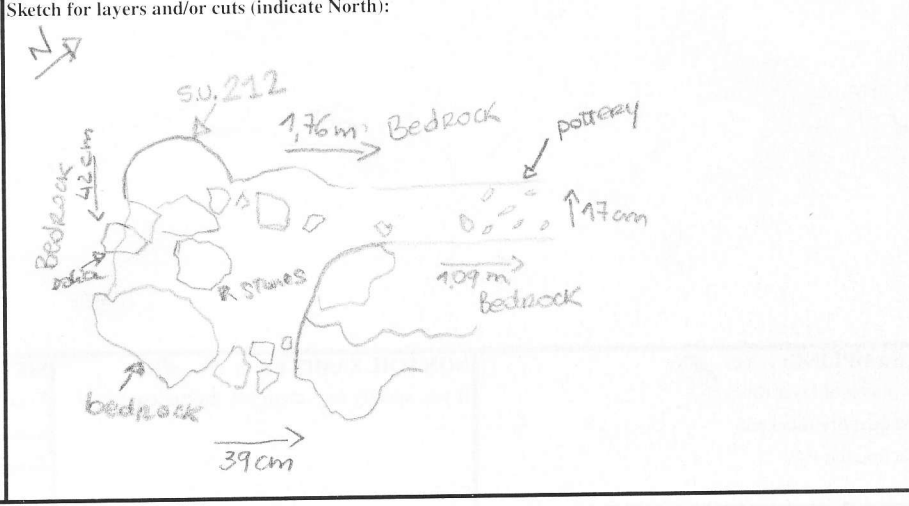 Sketch for layers and/or cuts (indicate North):
N
S.U. 212
1,76m
BEDROCK
pottery
BEDROCK
42cm
17cm
dolia
R STONES
1,09 m
BEDROCK
bedROCK
39cm